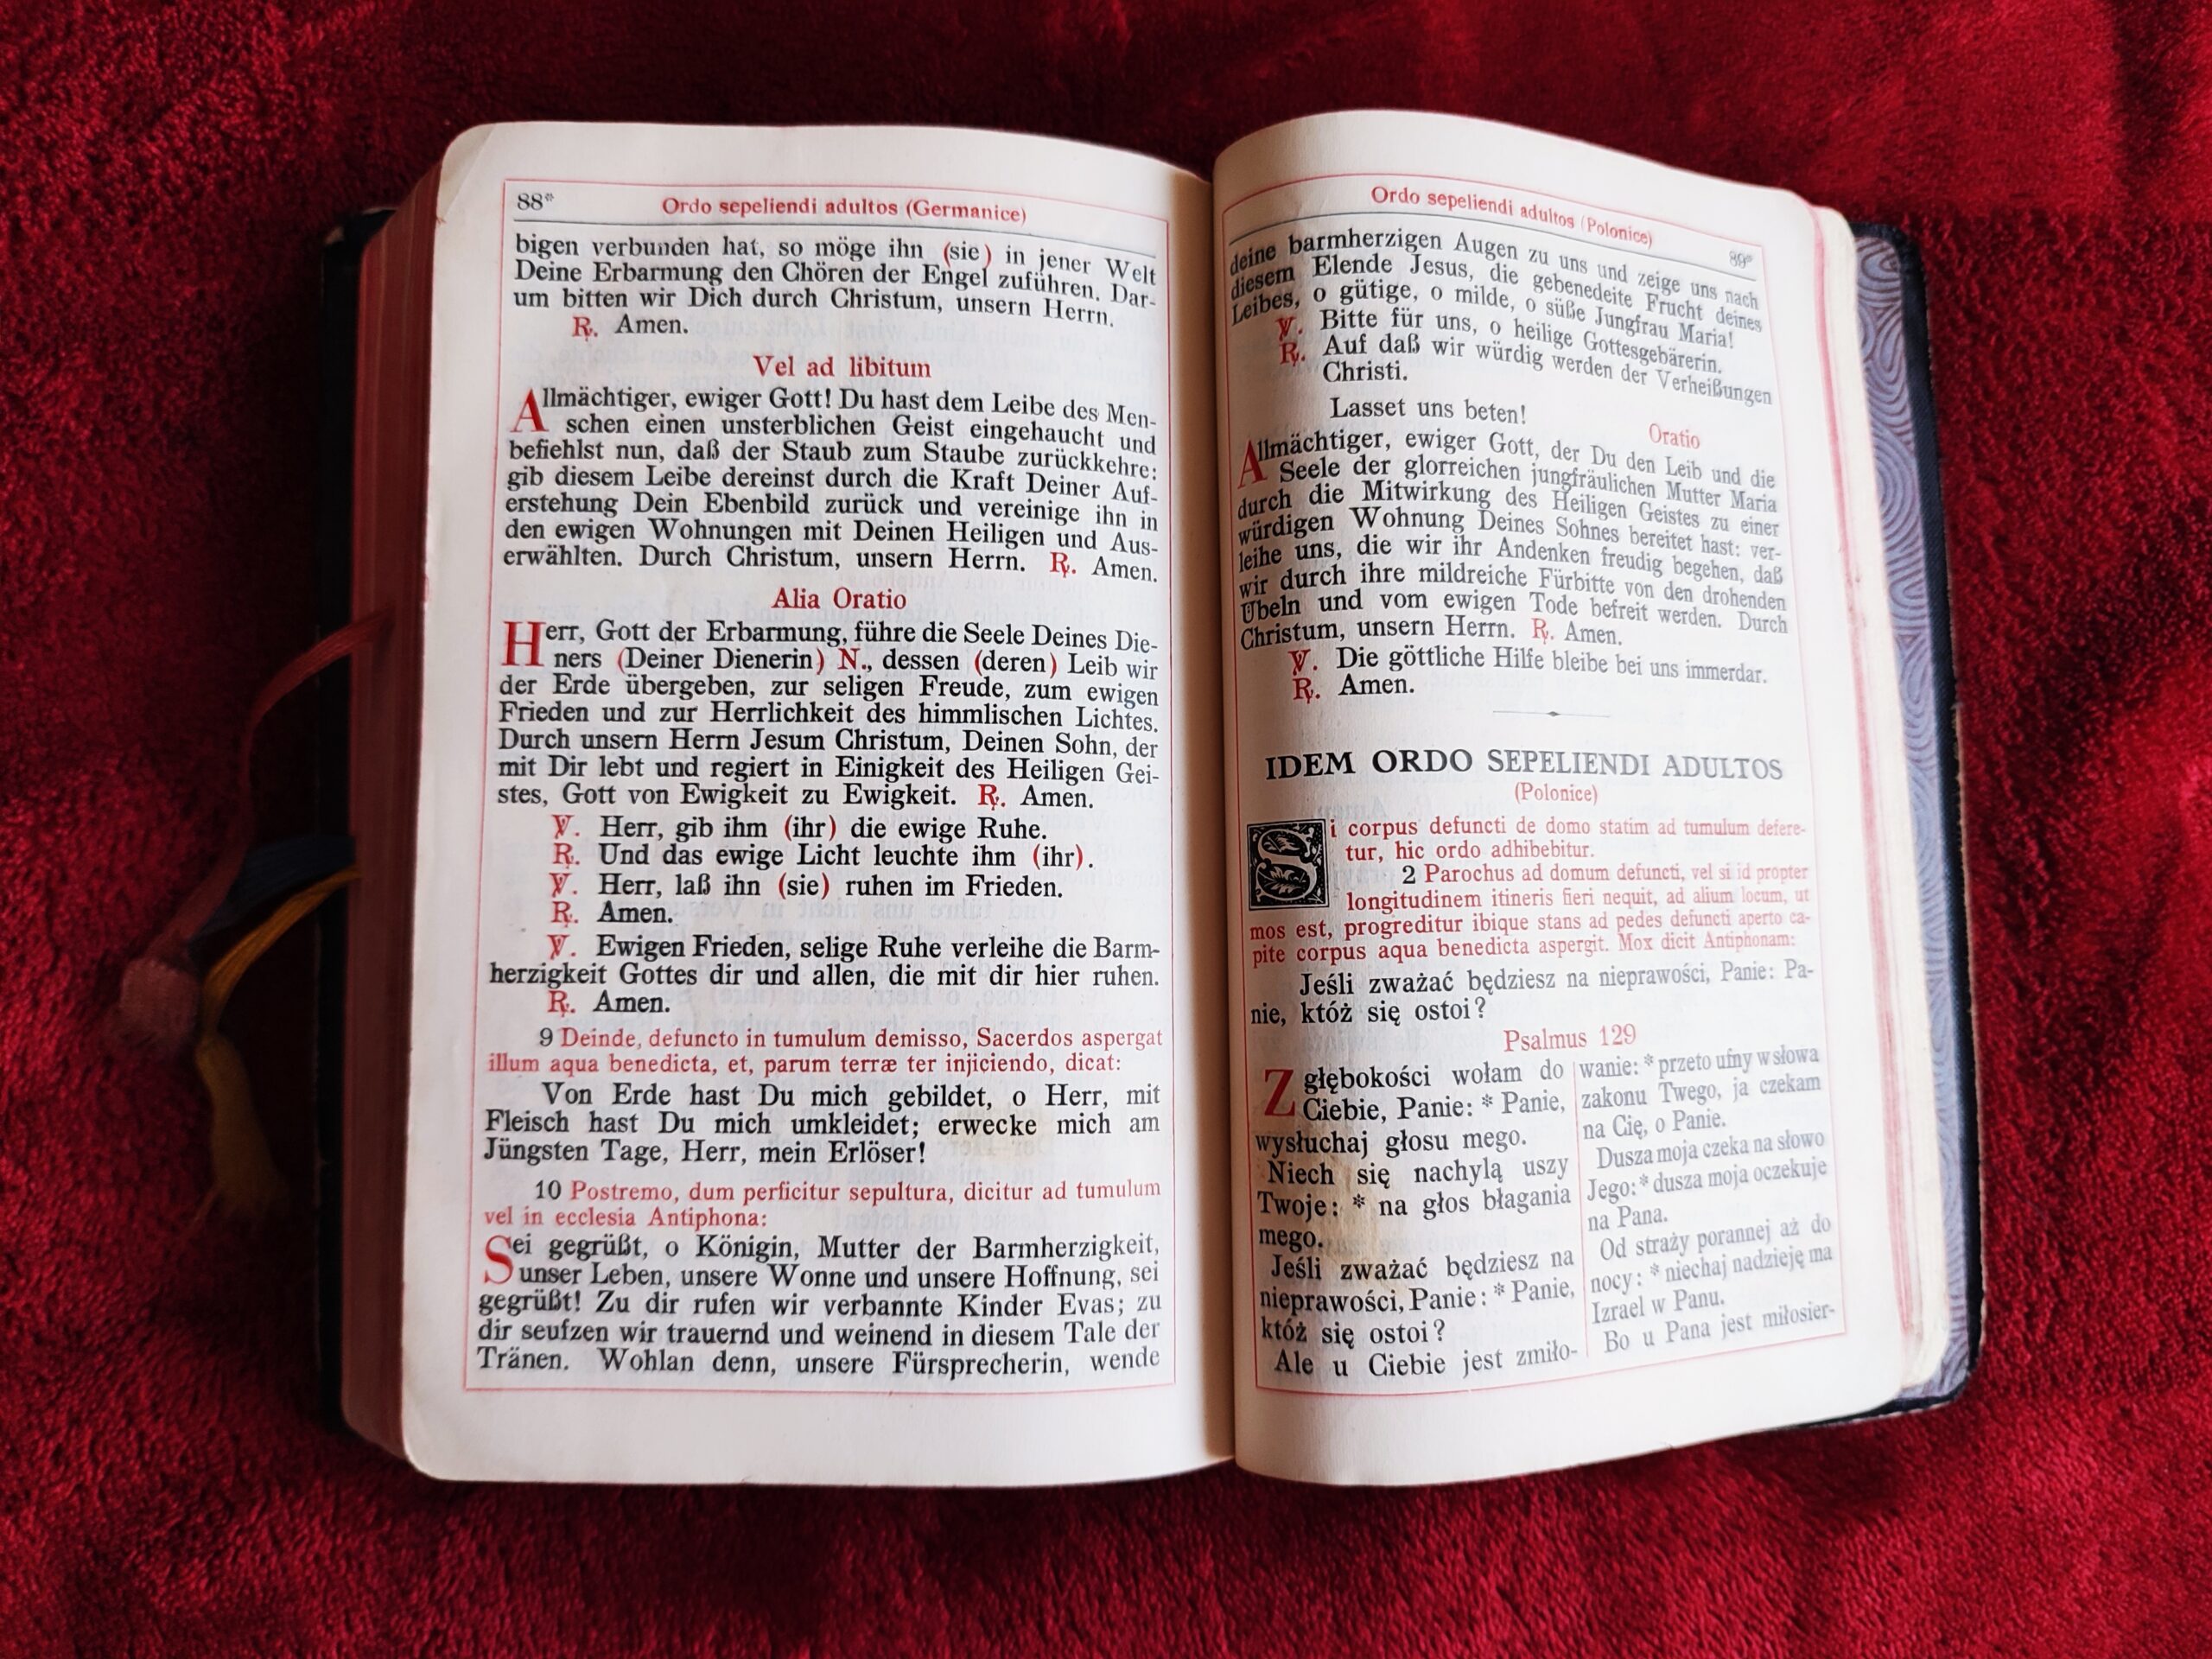 88*
Ordo sepeliendi adultos (Germanice)
bigen verbunden hat, so möge ihn (sie) in jener Welt
Deine Erbarmung den Chören der Engel zuführen. Dar-
um bitten wir Dich durch Christum, unsern Herrn.
℟. Amen.
Vel ad libitum
Allmächtiger, ewiger Gott! Du hast dem Leibe des Men-
schen einen unsterblichen Geist eingehaucht und
befiehlst nun, daß der Staub zum Staube zurückkehre:
gib diesem Leibe dereinst durch die Kraft Deiner Auf-
erstehung Dein Ebenbild zurück und vereinige ihn in
den ewigen Wohnungen mit Deinen Heiligen und Aus-
erwählten. Durch Christum, unsern Herrn. ℟. Amen.
Alia Oratio
Herr, Gott der Erbarmung, führe die Seele Deines Die-
ners (Deiner Dienerin) N., dessen (deren) Leib wir
der Erde übergeben, zur seligen Freude, zum ewigen
Frieden und zur Herrlichkeit des himmlischen Lichtes.
Durch unsern Herrn Jesum Christum, Deinen Sohn, der
mit Dir lebt und regiert in Einigkeit des Heiligen Gei-
stes, Gott von Ewigkeit zu Ewigkeit. ℟. Amen.
℣. Herr, gib ihm (ihr) die ewige Ruhe.
℟. Und das ewige Licht leuchte ihm (ihr).
℣. Herr, laß ihn (sie) ruhen im Frieden.
℟. Amen.
℣. Ewigen Frieden, selige Ruhe verleihe die Barm-
herzigkeit Gottes dir und allen, die mit dir hier ruhen.
℟. Amen.
9 Deinde, defuncto in tumulum demisso, Sacerdos aspergat
illum aqua benedicta, et, parum terræ ter injiciendo, dicat:
Von Erde hast Du mich gebildet, o Herr, mit
Fleisch hast Du mich umkleidet; erwecke mich am
Jüngsten Tage, Herr, mein Erlöser!
10 Postremo, dum perficitur sepultura, dicitur ad tumulum
vel in ecclesia Antiphona:
Sei gegrüßt, o Königin, Mutter der Barmherzigkeit,
unser Leben, unsere Wonne und unsere Hoffnung, sei
gegrüßt! Zu dir rufen wir verbannte Kinder Evas; zu
dir seufzen wir trauernd und weinend in diesem Tale der
Tränen. Wohlan denn, unsere Fürsprecherin, wende
Ordo sepeliendi adultos (Polonice)
89*
deine barmherzigen Augen zu uns und zeige uns nach
diesem Elende Jesus, die gebenedeite Frucht deines
Leibes, o gütige, o milde, o süße Jungfrau Maria!
℣. Bitte für uns, o heilige Gottesgebärerin.
℟. Auf daß wir würdig werden der Verheißungen
Christi.
Lasset uns beten!
Oratio
Allmächtiger, ewiger Gott, der Du den Leib und die
Seele der glorreichen jungfräulichen Mutter Maria
durch die Mitwirkung des Heiligen Geistes zu einer
würdigen Wohnung Deines Sohnes bereitet hast: ver-
leihe uns, die wir ihr Andenken freudig begehen, daß
wir durch ihre mildreiche Fürbitte von den drohenden
Übeln und vom ewigen Tode befreit werden. Durch
Christum, unsern Herrn. ℟. Amen.
℣. Die göttliche Hilfe bleibe bei uns immerdar.
℟. Amen.
IDEM ORDO SEPELIENDI ADULTOS
(Polonice)
Si corpus defuncti de domo statim ad tumulum defere-
tur, hic ordo adhibebitur.
2 Parochus ad domum defuncti, vel si id propter
longitudinem itineris fieri nequit, ad alium locum, ut
mos est, progreditur ibique stans ad pedes defuncti aperto ca-
pite corpus aqua benedicta aspergit. Mox dicit Antiphonam:
Jeśli zważać będziesz na nieprawości, Panie: Pa-
nie, któż się ostoi?
Psalmus 129
Z głębokości wołam do
Ciebie, Panie: * Panie,
wysłuchaj głosu mego.
Niech się nachylą uszy
Twoje: * na głos błagania
mego.
Jeśli zważać będziesz na
nieprawości, Panie: * Panie,
któż się ostoi?
Ale u Ciebie jest zmiło-
wanie: * przeto ufny w słowa
zakonu Twego, ja czekam
na Cię, o Panie.
Dusza moja czeka na słowo
Jego: * dusza moja oczekuje
na Pana.
Od straży porannej aż do
nocy: * niechaj nadzieję ma
Izrael w Panu.
Bo u Pana jest miłosier-